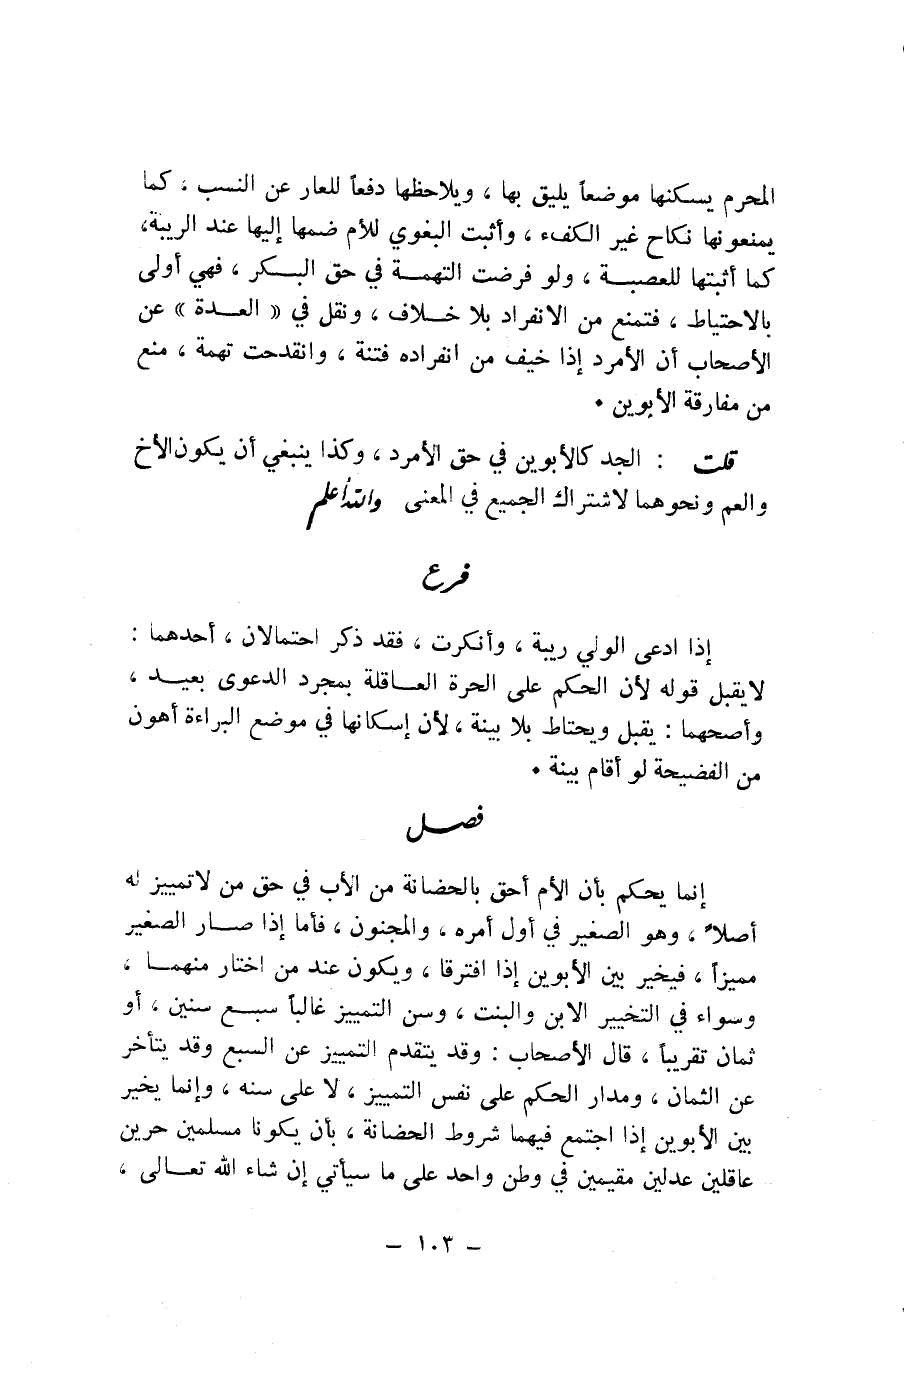 المحرم يسكنها موضعاً يليق بها ، ويلاحظها دفعاً للعار عن النسب ، كما
يمنعونها نكاح غير الكفء ، وأثبت البغوي للأم ضمها إليها عند الريبة،
كما أثبتها للعصبة ، ولو فرضت التهمة في حق البكر ، فهي أولى
بالاحتياط ، فتمنع من الانفراد بلا خلاف ، ونقل في « العدة » عن
الأصحاب أن الأمرد إذا خيف من انفراده فتنة ، وانقدحت تهمة ، منع
من مفارقة الأبوين .
قلت : الجد كالأبوين في حق الأمرد ، وكذا ينبغي أن يكون الأخ
والعم ونحوهما لاشتراك الجميع في المعنى والله أعلم
فرع
إذا ادعى الولي ريبة ، وأنكرت ، فقد ذكر احتمالان ، أحدهما :
لايقبل قوله لأن الحكم على الحرة العاقلة بمجرد الدعوى بعيد ،
وأصحهما : يقبل ويحتاط بلا بينة ، لأن إسكانها في موضع البراءة أهون
من الفضيحة لو أقام بينة .
فصل
إنما يحكم بأن الأم أحق بالحضانة من الأب في حق من لاتمييز له
أصلاً ، وهو الصغير في أول أمره ، والمجنون ، فأما إذا صار الصغير
مميزاً ، فيخير بين الأبوين إذا افترقا ، ويكون عند من اختار منهما ،
وسواء في التخيير الابن والبنت ، وسن التمييز غالباً سبع سنين ، أو
ثمان تقريباً ، قال الأصحاب : وقد يتقدم التمييز عن السبع وقد يتأخر
عن الثمان ، ومدار الحكم على نفس التمييز ، لا على سنه ، وإنما يخير
بين الأبوين إذا اجتمع فيهما شروط الحضانة ، بأن يكونا مسلمين حرين
عاقلين عدلين مقيمين في وطن واحد على ما سيأتي إن شاء الله تعالى ،
– ١٠٣ –